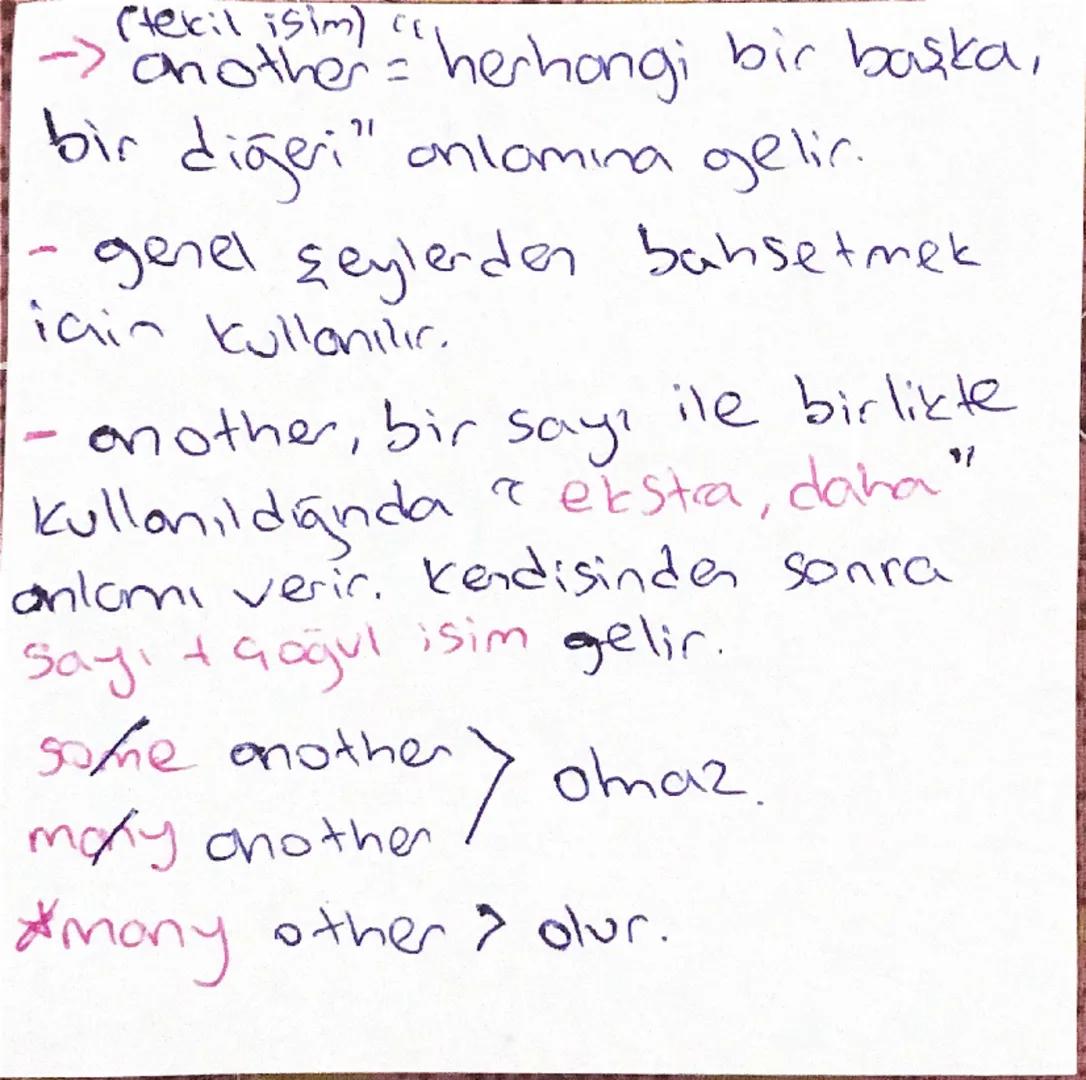 (tekil isim)
→ another = "herhangi bir başka,
bir diğeri" anlamına gelir.
- genel şeylerden bahsetmek
için kullanılır.
- another, bir sayı ile birlikte
kullanıldığında "ekstra, daha"
anlamı verir. Kendisinden sonra
sayı + çoğul isim gelir.
some another > olmaz.
many another
*many other > olur.